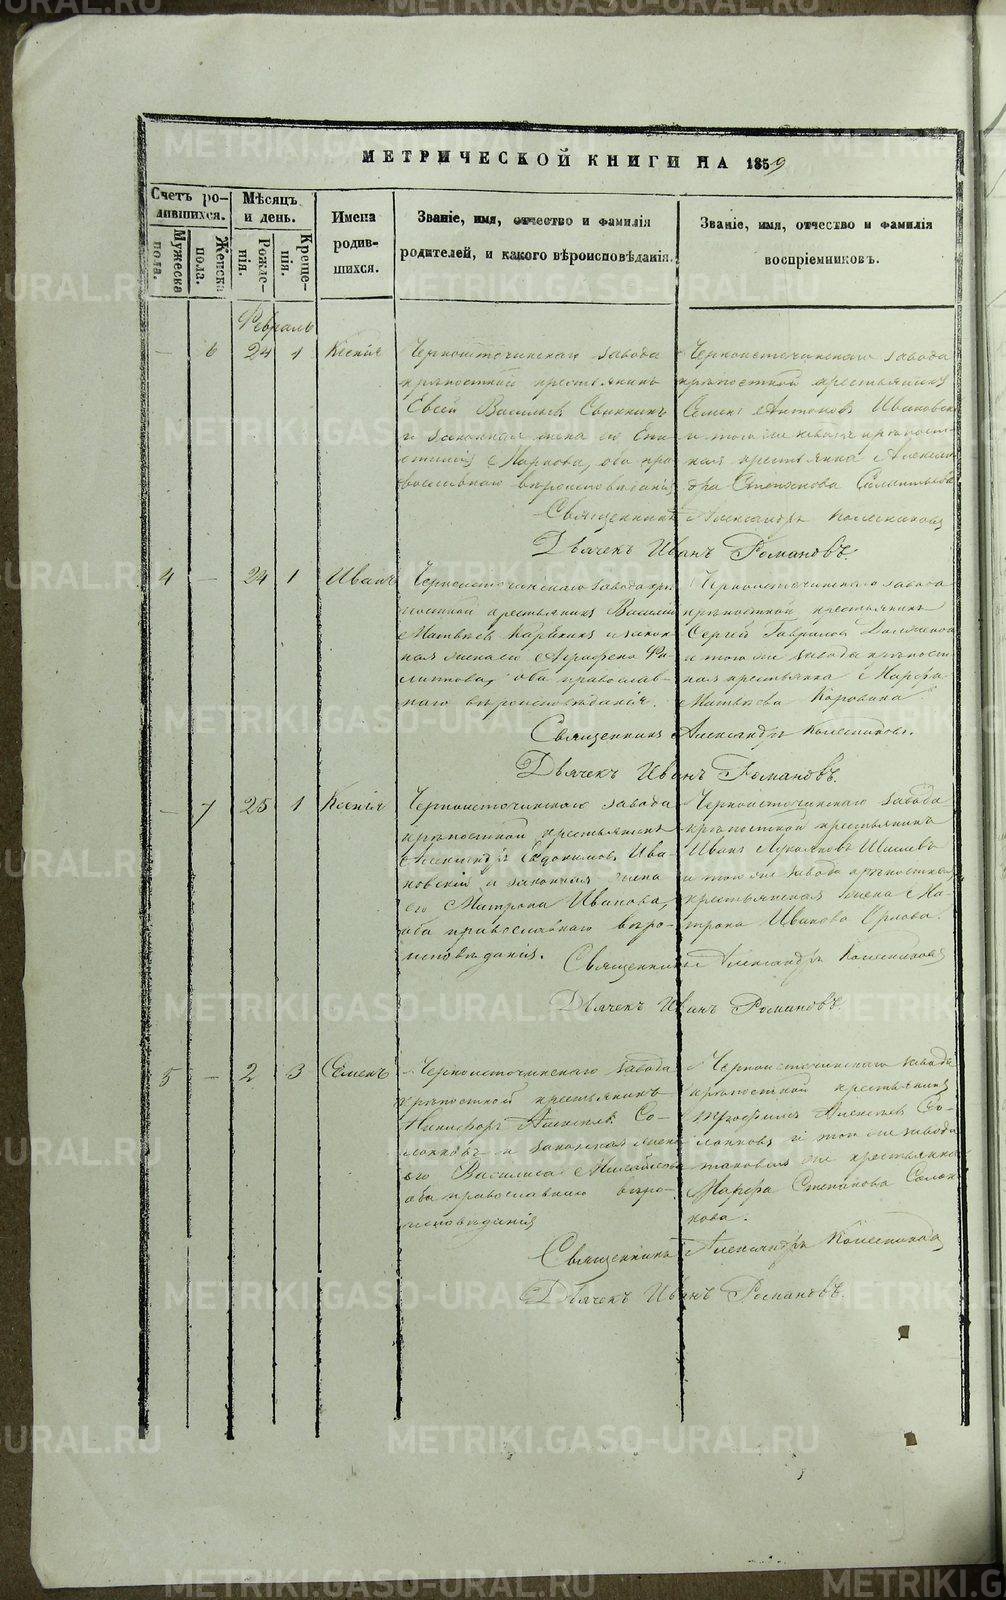 МЕТРИЧЕСКОЙ КНИГИ НА 1859
Счетъ родившихся.
Мужеска пола.
Женска пола.
Мѣсяцъ и день.
Рожденія.
Крещенія.
Имена родившихся.
Званіе, имя, отчество и фамилія
родителей, и какого вѣроисповѣданія.
Званіе, имя, отчество и фамилія
воспріемниковъ.
Февраль
— 6 24 1 Ксенія
Черноисточинскаго завода
крѣпостный крестьянинъ
Евсей Васильевъ
и законная жена его
Маркова, оба пра-
вославнаго вѣроисповѣданія
Черноисточинскаго завода
крѣпостной крестьянинъ
Семенъ Антоновъ Ивановск
и того же завода крѣпост-
ная крестьянка Алексан-
дра
Священникъ Александръ Колесниковъ
Дьячекъ Иванъ Романовъ.
4 — 24 1 Иванъ
Черноисточинскаго завода крѣ-
постной крестьянинъ Василій
Матвѣевъ и закон-
ная жена его Аграфена Фи-
липпова, оба православ-
наго вѣроисповѣданія.
Черноисточинскаго завода
крѣпостной крестьянинъ
Сергій Гавриловъ
и того же завода крѣпост-
ная крестьянка Марфа
Матвѣева Коровина
Священникъ Александръ Колесниковъ.
Дьячекъ Иванъ Романовъ.
— 7 25 1 Ксенія
Черноисточинскаго завода
крѣпостной крестьянинъ
Александръ Евдокимовъ Ива-
новскій и законная жена
его Матрона Иванова,
оба православнаго вѣро-
исповѣданія.
Черноисточинскаго завода
крѣпостной крестьянинъ
Иванъ Лукояновъ Шишевъ
и того же завода крѣпостная
крестьянская жена Ма-
трона Иванова Орлова.
Священникъ Александръ Колесниковъ
Дьячекъ Иванъ Романовъ.
5 — 2 3 Семенъ
Черноисточинскаго завода
крѣпостной крестьянинъ
Никифоръ Алексѣевъ Со-
лонковъ и законная жена
его Василиса Михайлова
оба православнаго вѣро-
исповѣданія
Черноисточинскаго завода
крѣпостной крестьянинъ
Трофимъ Алексѣевъ Со-
лонковъ и того же завода
таковая же крестьянка
Марфа Степанова Солон-
кова.
Священникъ Александръ Колесниковъ
Дьячекъ Иванъ Романовъ.
METRIKI.GASO-URAL.RU